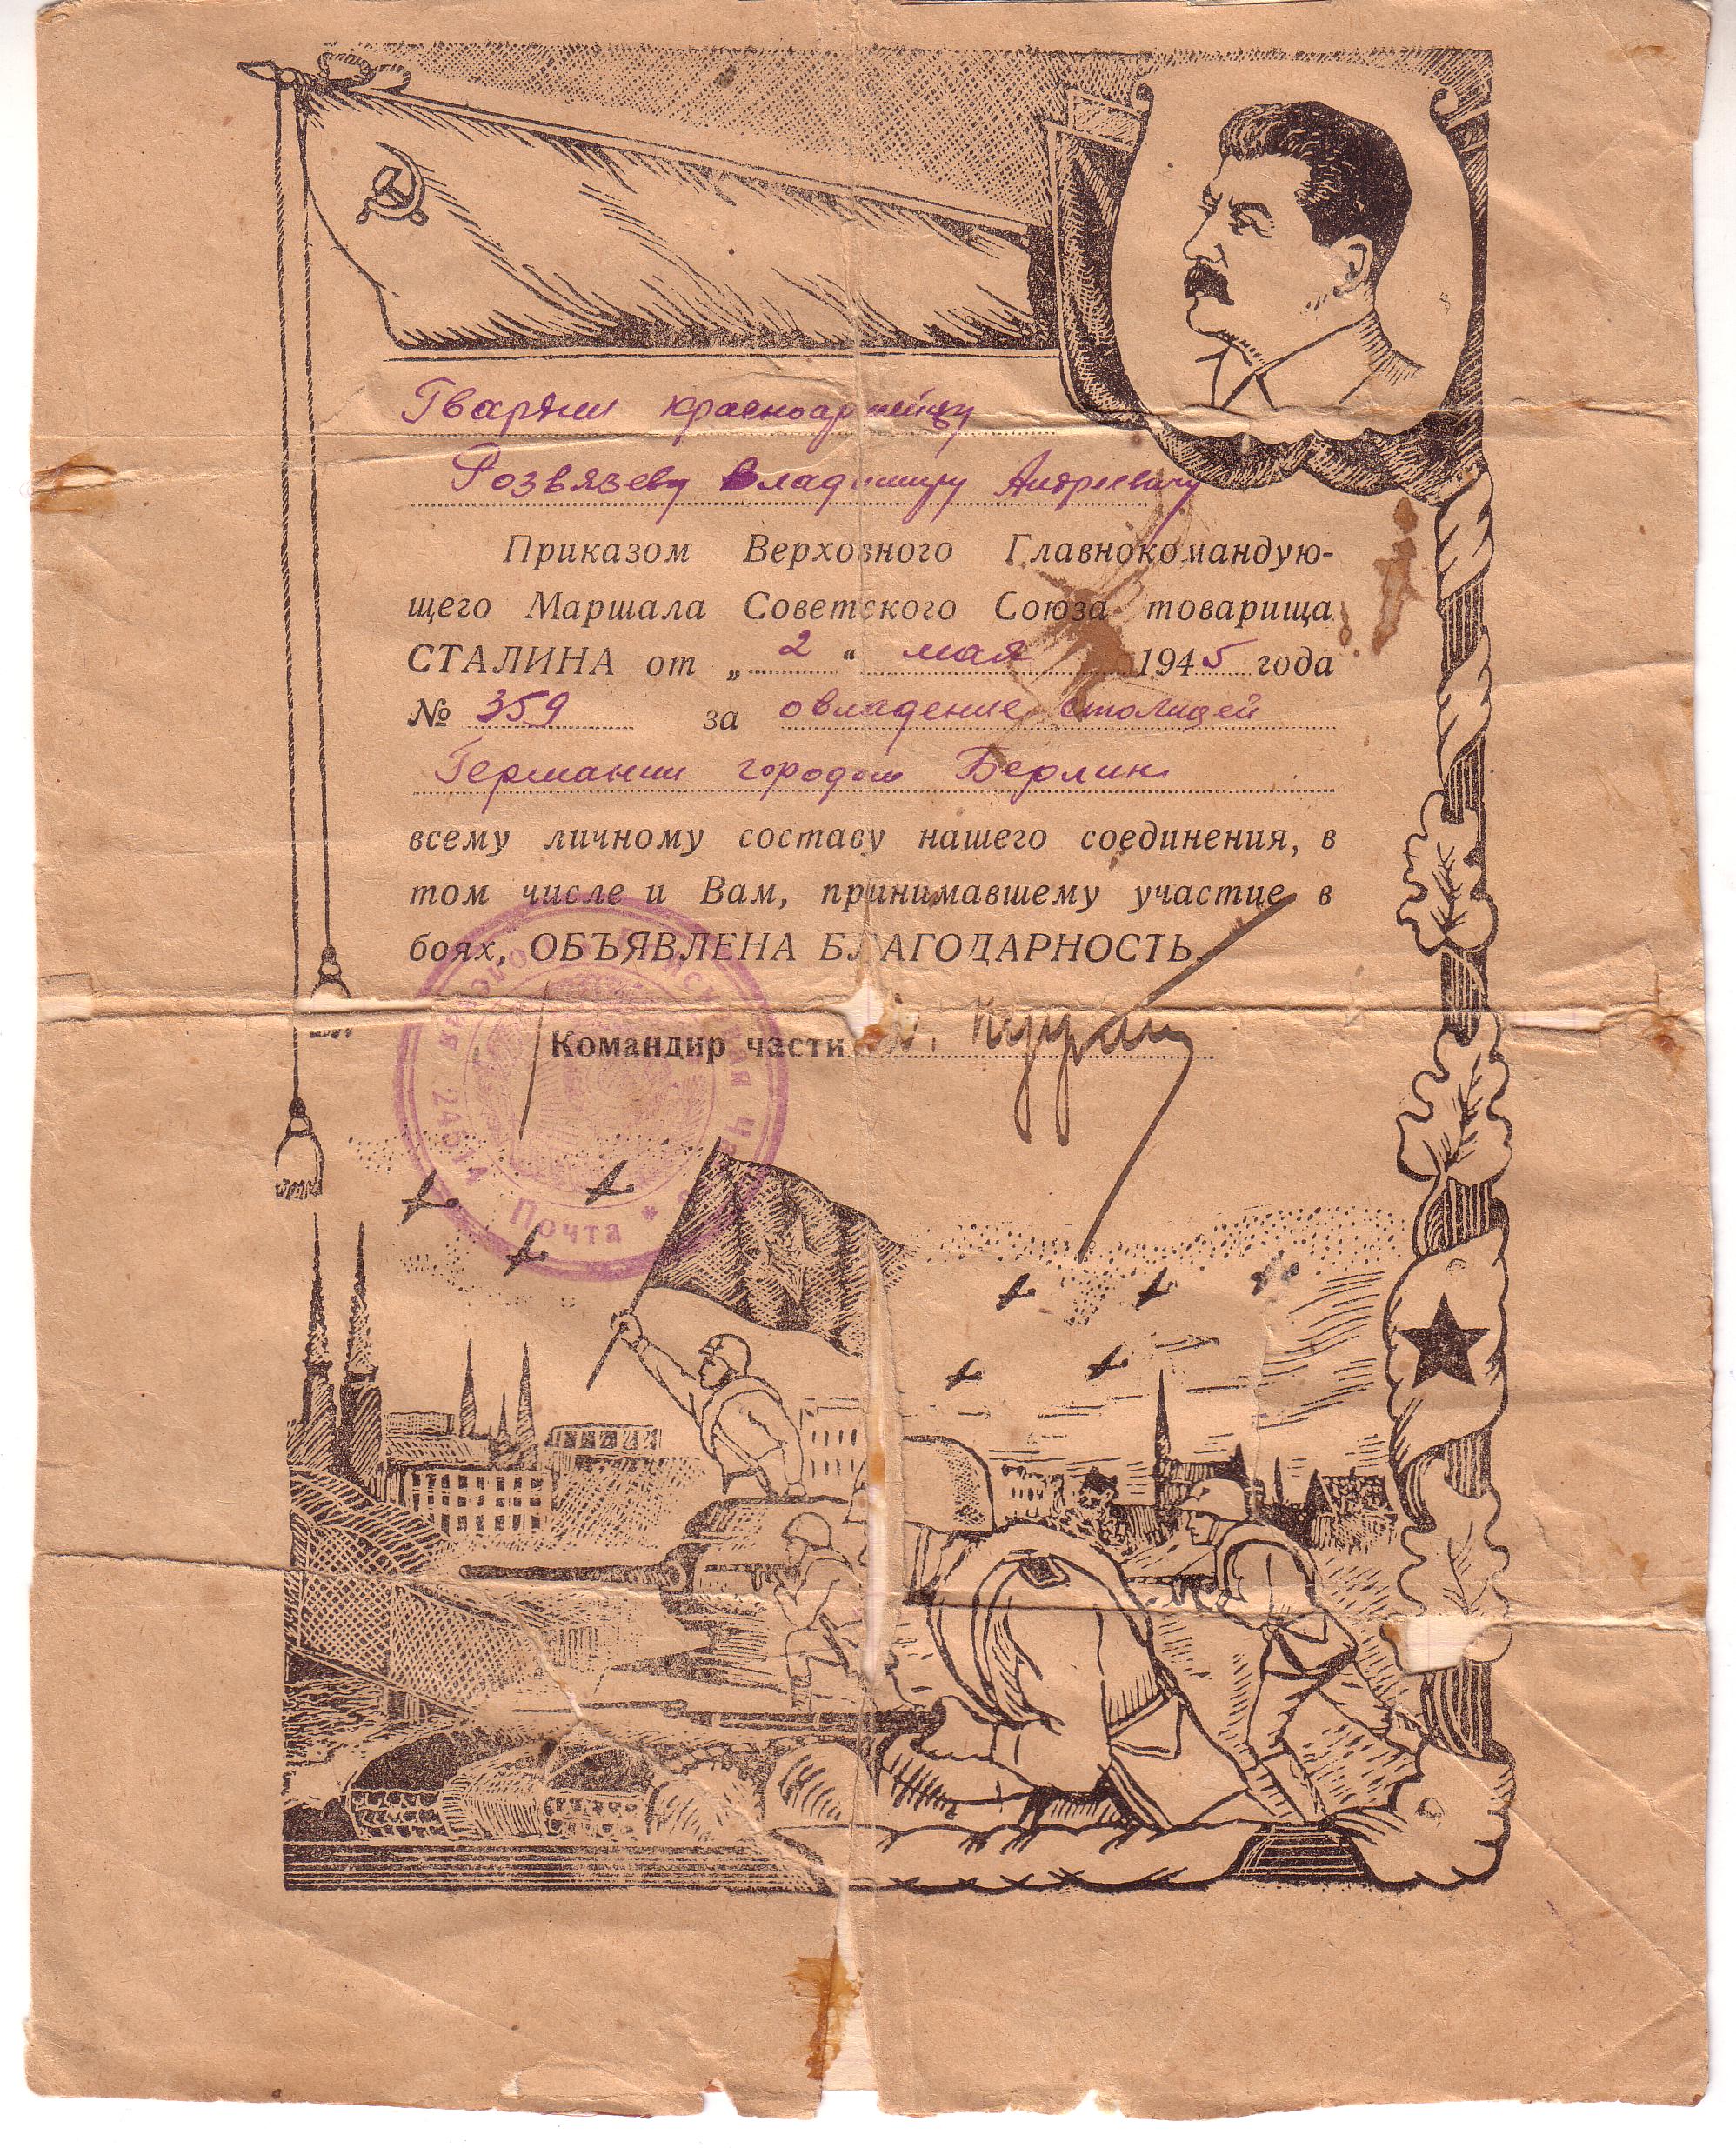 Гвардии красноармейцу
Розвязеву Владимиру Андреевичу
Приказом Верховного Главнокомандую-
щего Маршала Советского Союза товарища
СТАЛИНА от „ 2 “ мая 1945 года
№ 359 за овладение столицей
Германии городом Берлин
всему личному составу нашего соединения, в
том числе и Вам, принимавшему участие в
боях, ОБЪЯВЛЕНА БЛАГОДАРНОСТЬ.
Командир части
Полевая
Почта *